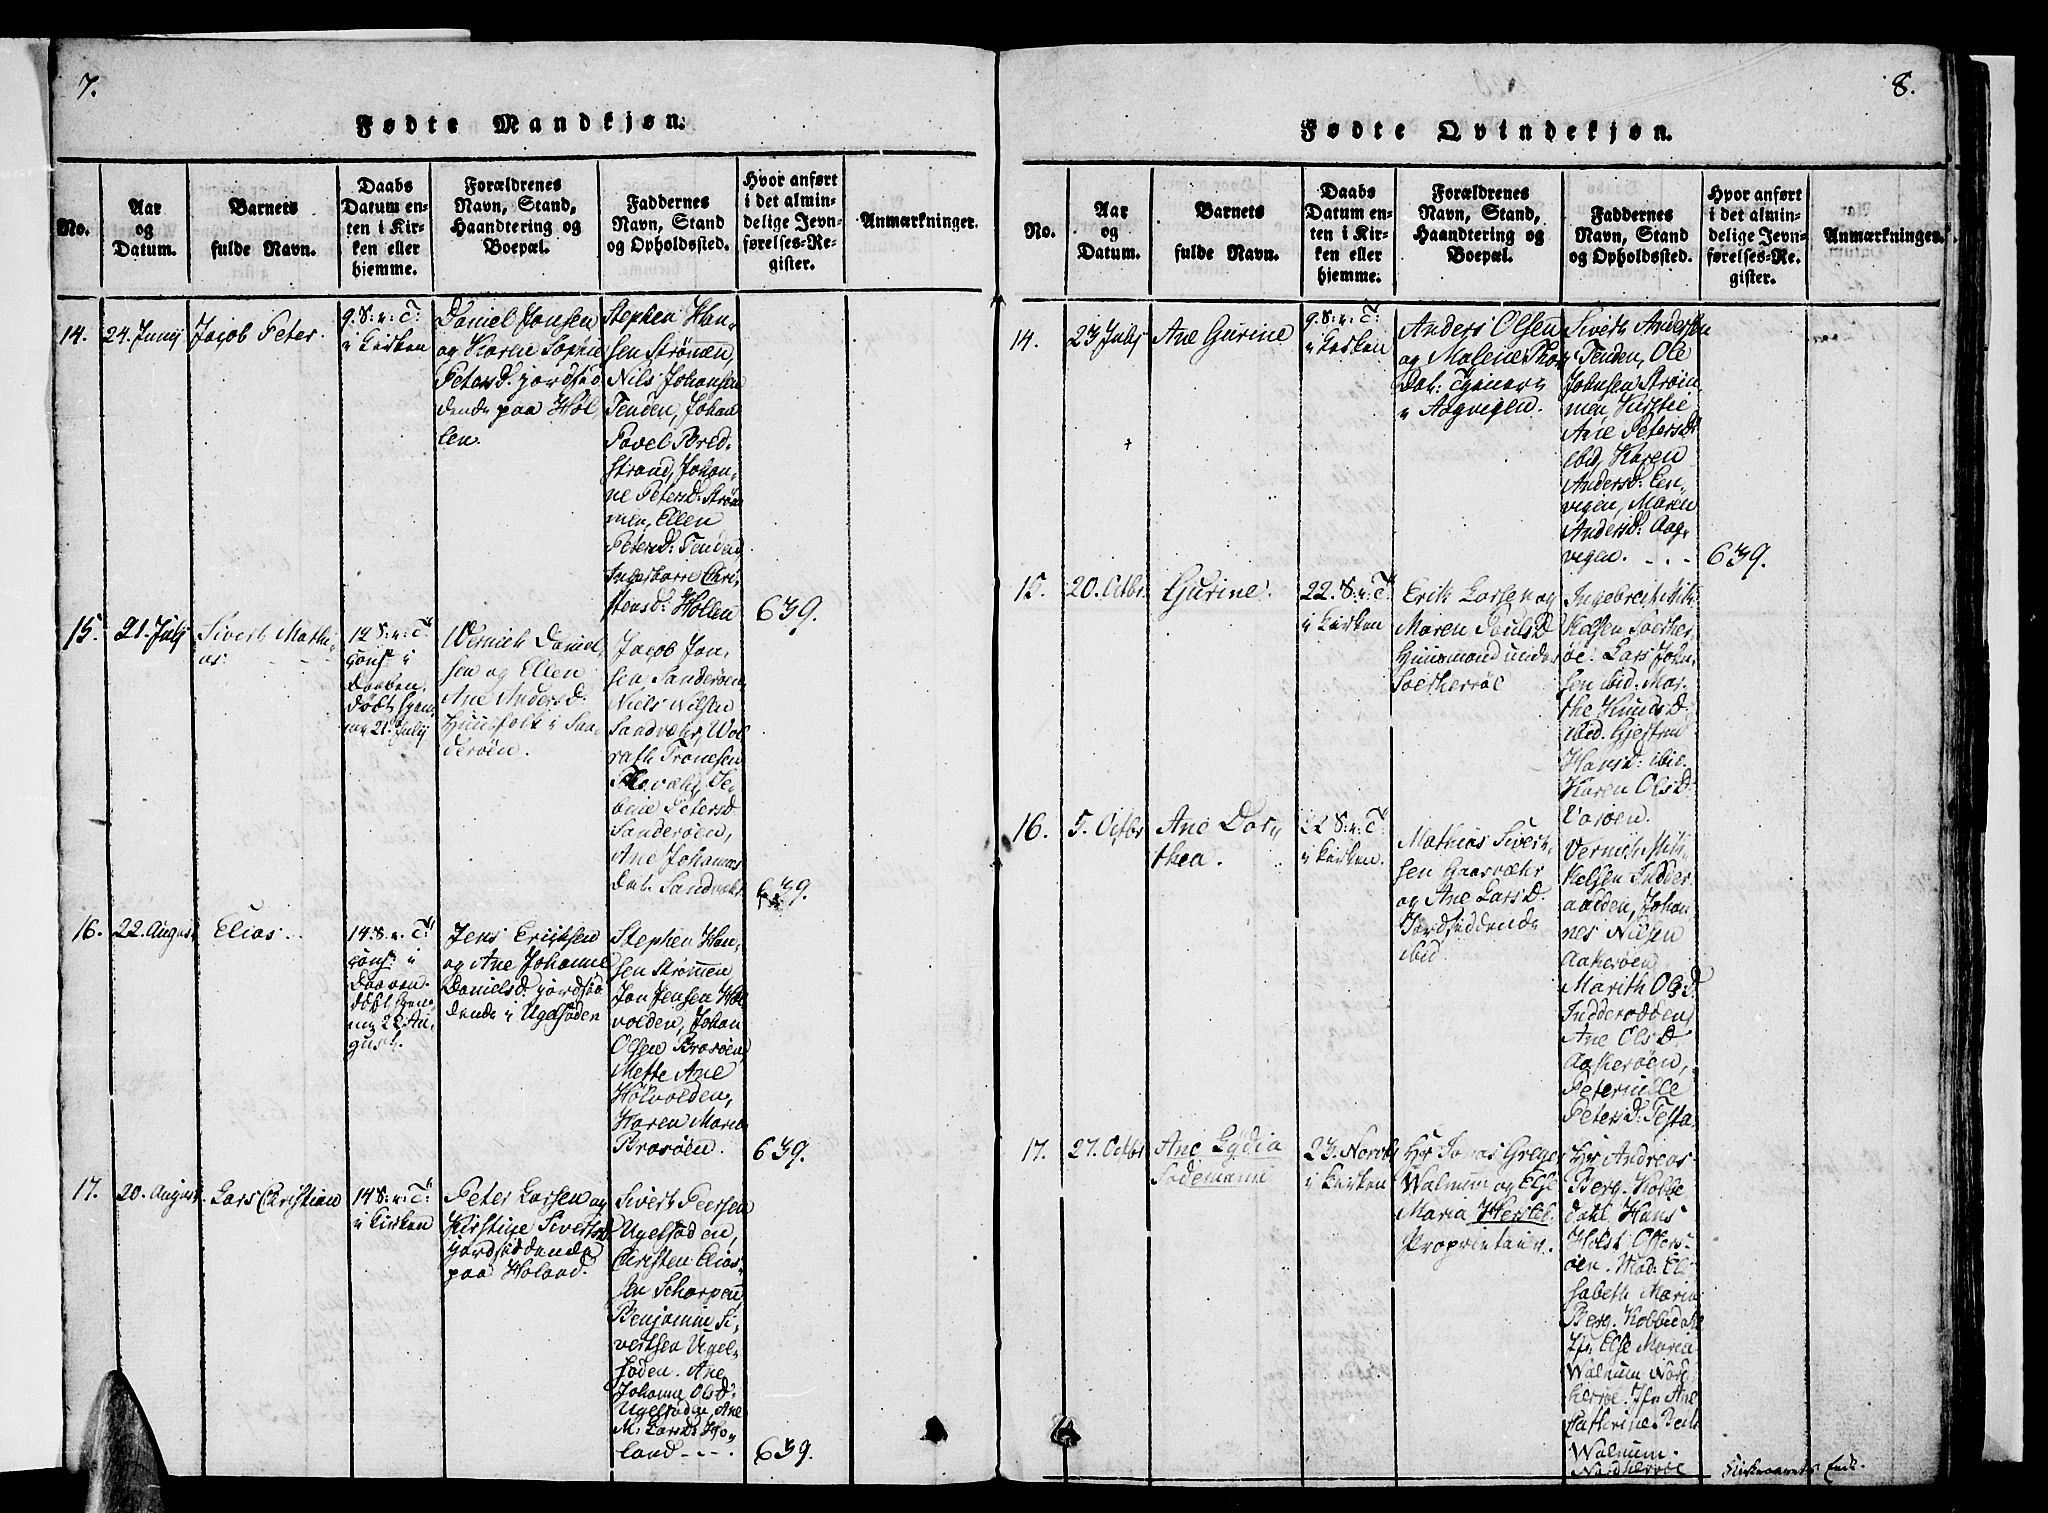 7.
Fødte Mandkjøn.
No.
Aar
og
Datum.
Barnets
fulde Navn.
Daabs
Datum en-
ten i Kir-
ken eller
hjemme.
Forældrenes
Navn, Stand,
Haandtering og
Boepæl.
Faddernes
Navn, Stand
og Opholdssted.
Hvor anført
i det almin-
delige Jevn-
førelses-Re-
gister.
Anmærkninger.
14.
24. Junij
Jacob Peter.
9. S. v. T:
i Kirken
Daniel Hansen
og Karen Sophie
Petersd.
dende paa Høl
len.
Stephen Han-
sen Strømen,
Nils Johansen
Tenden, Johan
Povel Bred-
strand, Johan-
ne Petersd: Strøm
men, Ellen
Petersd: Tenden
Chri-
stensd: Hollen
639.
15.
21. Julij
Sivert Mathi-
as.
12 S. v. T:
i
Daaben.
21. Julij
Daniel-
sen og Ellen
Ane Andersd.
Huusfolk i San-
derøen.
Jacob Jan-
sen Sanderøen,
Niels Nilsen
Sandvær,
Tronesen
Petersd
Sanderøen,
Ane Johannes
dat.
639.
16.
22. August
Elias.
14. S. v. T:
i
Daaben.
22 Au-
gust.
Jens Eriksen
og Ane Johanne
Danielsd.
dende i Ugelsöden
Stephen Han-
sen Strømmen
Jan Jensen Høl
volden, Johan
Olsen Brasøen,
Mette Ane
Hölvolden,
Karen Maria
Brasöen.
639.
17.
20. August
Lars Christian
14 S. v. T:
i Kirken
Peter Larsen og
Kirstine Sivertsd
jordsiddende
paa Holand.
Sivert Peersen
Ugelsöden,
Christen Elias-
sen
Benjamin Si-
vertsen Ugel-
söden. Ane
Johanna Olsd:
Ugelsöden, Ane
M: Larsd: Ho-
land - - -
639.
8.
Fødte Qvindekjøn.
No.
Aar
og
Datum.
Barnets
fulde Navn.
Daabs
Datum en-
ten i Kir-
ken eller
hjemme.
Forældrenes
Navn, Stand,
Haandtering og
Boepæl.
Faddernes
Navn, Stand
og Opholdssted.
Hvor anført
i det almin-
delige Jevn-
førelses-Re-
gister.
Anmærkninger.
14.
23 Julij
Ane Gurine
9. S. v. T:
i Kirken
Anders Olsen
og Malene Thor
Dat:
i Aagvigen.
Sivert Andersen
Tenden, Ole
Johnsen Strøm
men
Ane Petersd:
ibid, Karen
Andersd: Een-
vigen, Maren
Andersd: Aag-
vigen. - - -
639.
15.
20. Octbr
Gurine.
22. S. v. T:
i Kirken
Erik Larsen og
Maren Poulsd
Huusmand under
Sætherröe
Ingebrect Mik-
kelsen Soether
röe. Lars John-
sen ibid. Mar-
the Knudsd:
ibid. Gjertrud
Hansd: ibid.
Karen Olsd:
16.
5. Octbr
Ane Dor-
thea.
22 S: v: T:
i Kirken.
Mathias Sivert-
sen Gaasvær
og Ane Larsd.
Jordsiddende
ibid.
Vernik Mik-
kelsen Indder-
aadden, Johan-
nes Nilsen
Aakerøen,
Marith Olsd:
Ane Olsd:
Aakerøen,
Peternille
Petersd: Testa.
17.
27. Octbr
Ane Lydia
Sodemann
23. Novbr
i Kirken
Hr Jonas Greger
Walnum og Else
Maria Herstel.
Proprietair.
Hr Andreas
Berg. Kobbe
dahl. Hans
Holst Offers-
öen. Mad: Eli-
sabeth Maria
Berg.
Jfr: Else Maria
Walnum
Jfr Ane
Cathrine
Walnum.
Kirkeaarets Ende.